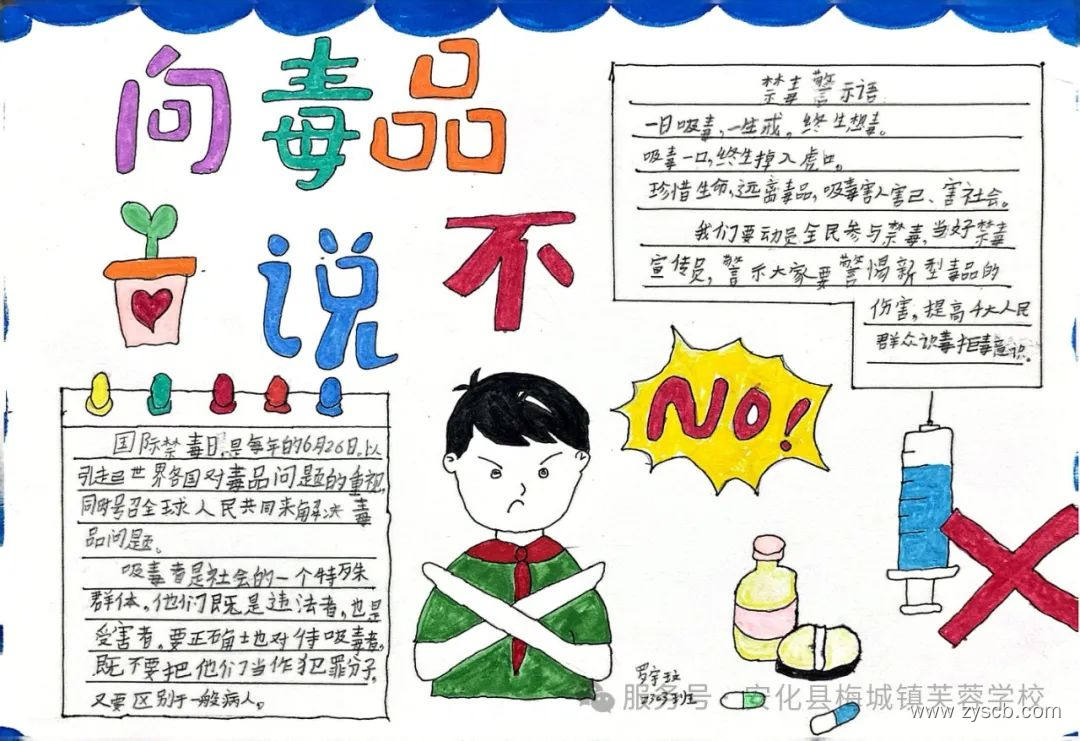 向毒品
说不
禁毒警示语
一日吸毒，一生戒。终生想毒。
吸毒一口，终生掉入虎口。
珍惜生命，远离毒品，吸毒害人害己、害社会。
我们要动员全民参与禁毒，当好禁毒
宣传员，警示大家要警惕新型毒品的
伤害，提高广大人民
群众识毒拒毒意识。
NO!
国际禁毒日，是每年的6月26日，以
引起世界各国对毒品问题的重视，
同时号召全球人民共同来解决毒
品问题。
吸毒者是社会的一个特殊
群体。他们既是违法者，也是
受害者，要正确土地对待吸毒者，
既不要把他们当作犯罪分子，
又要区别于一般病人。
服务号·安化县梅城镇芙蓉学校
www.zyscb.com